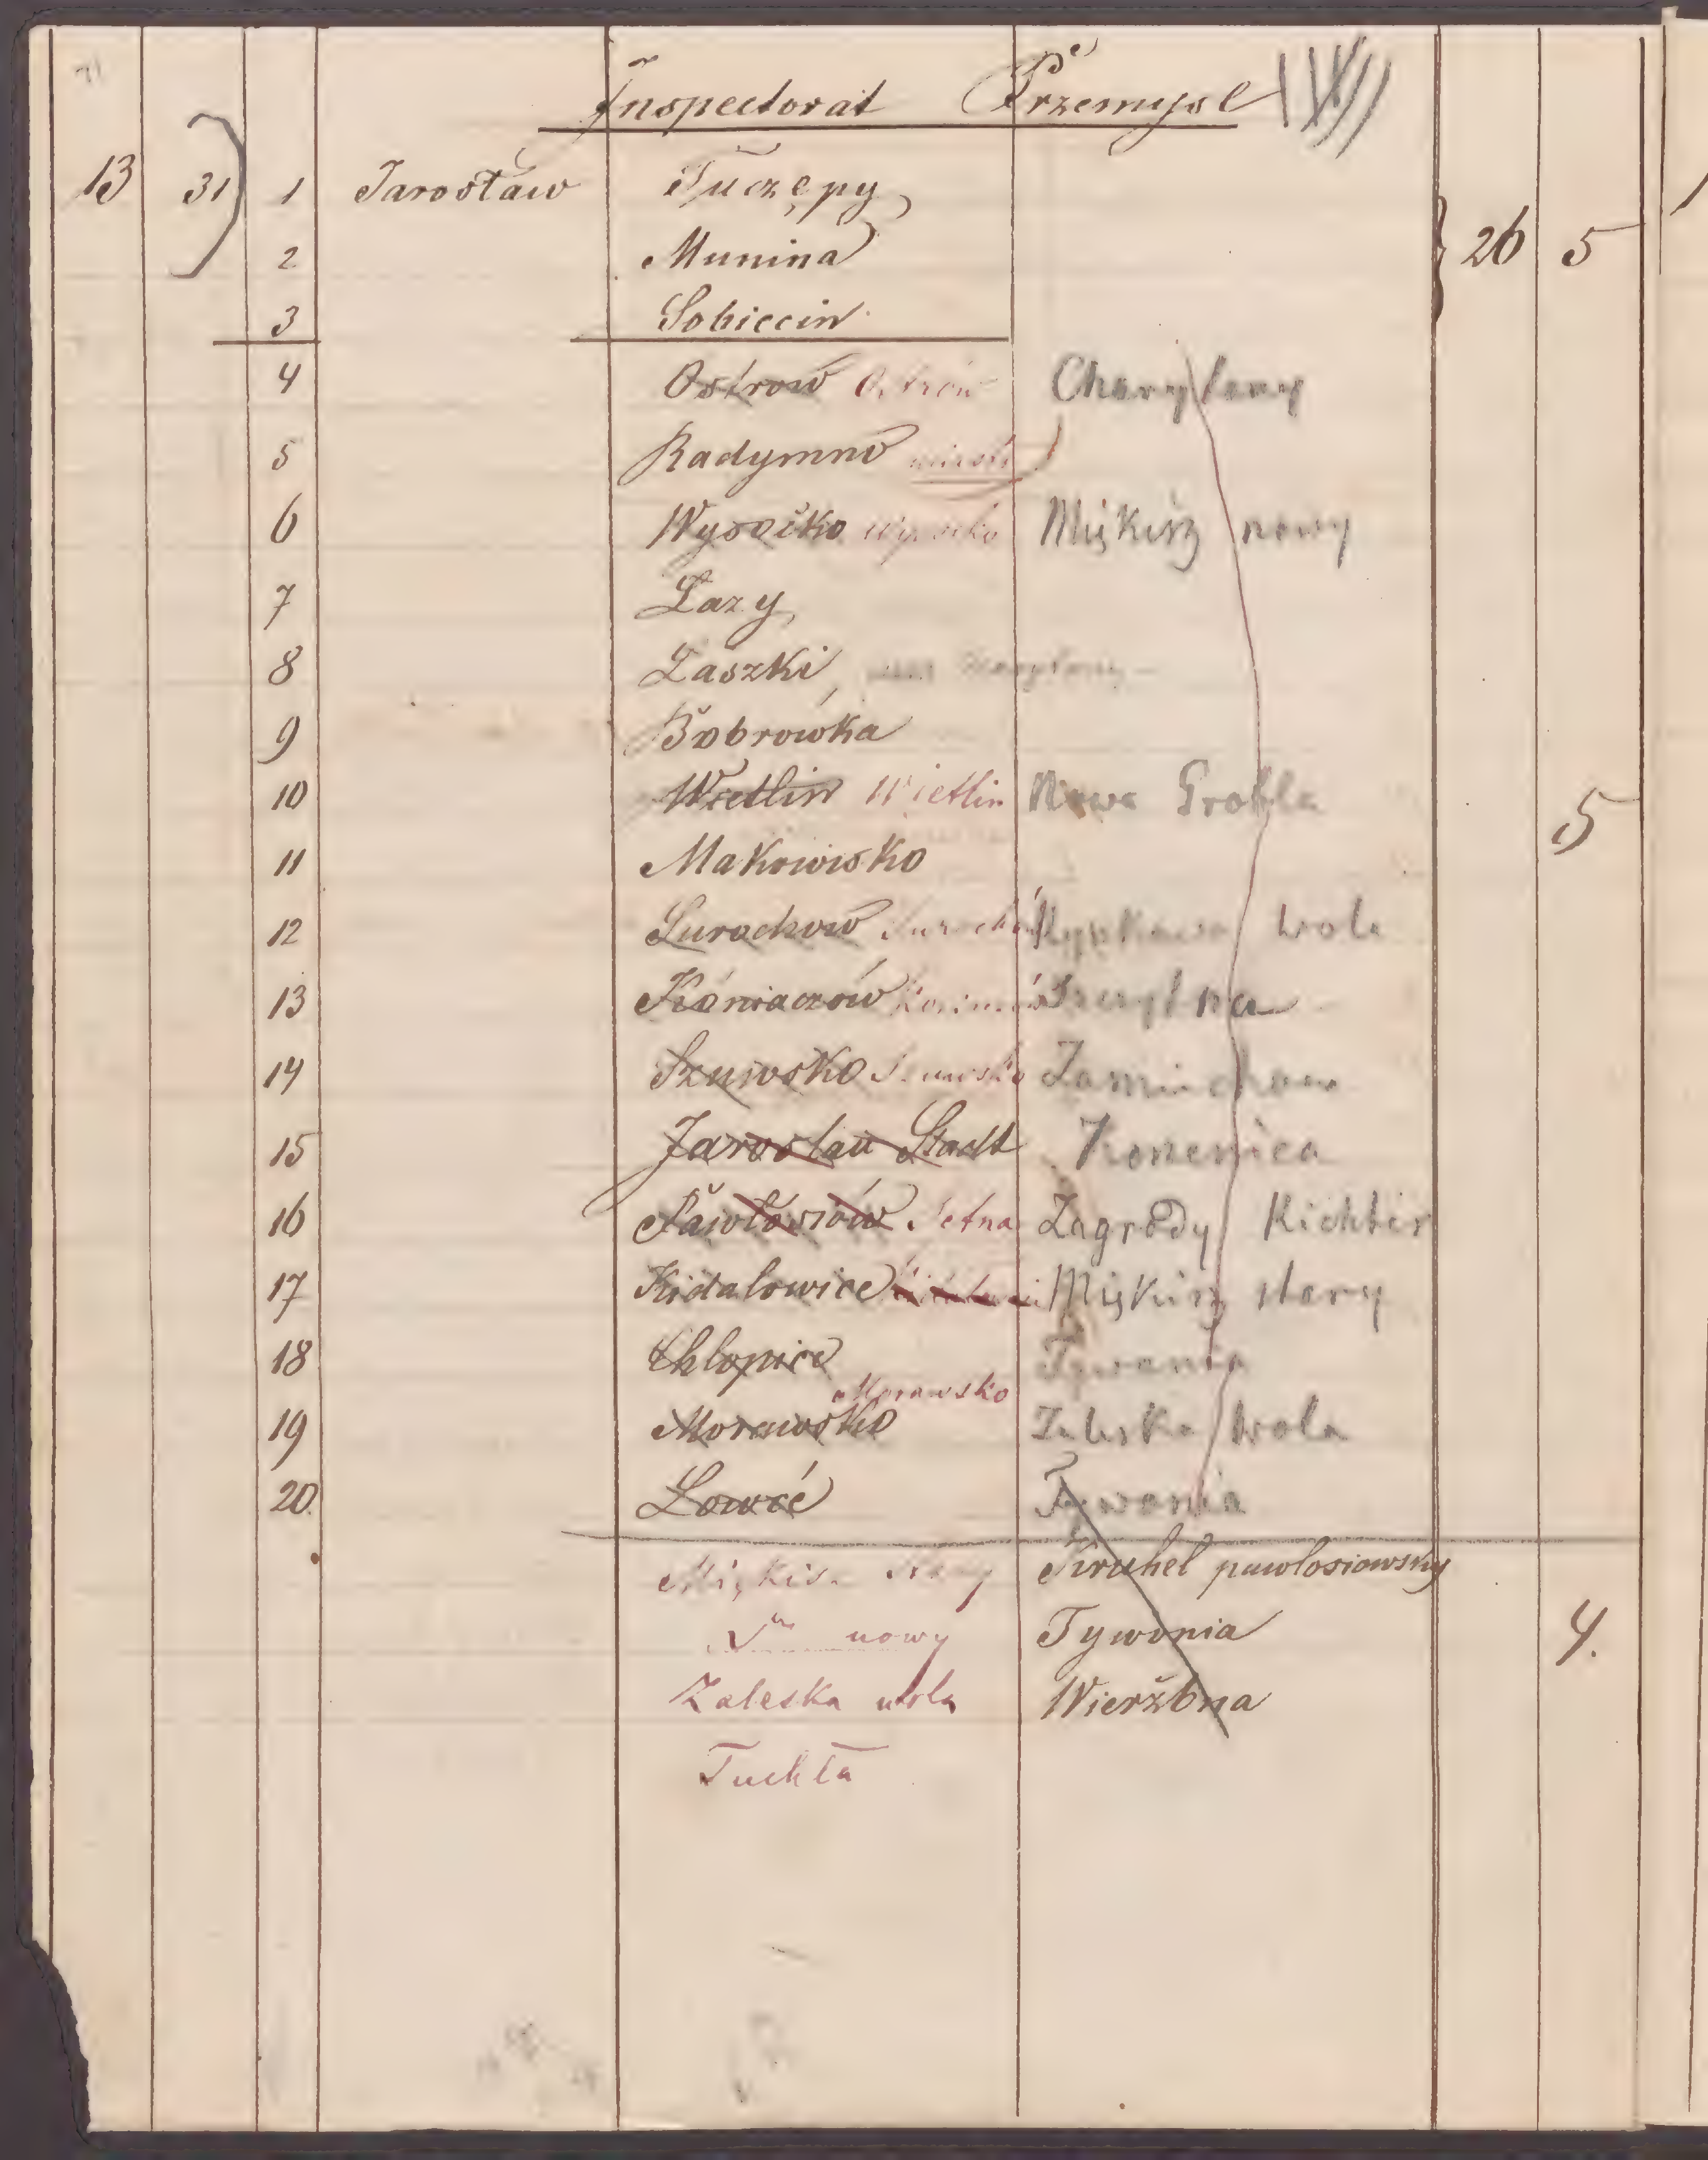 71
Inspectorat Przemysl
13 31 1 Jarosław Tuczępy 26 5
2 Munina
3 Sobiecin
4 Ostrow Ostrów Charytany
5 Radymno miasto
6 Wysočko Wysocko Miękisz nowy
7 Lazy
8 Laszki
9 Bobrowka
10 Wietlin Wietlin Nowa Grobla 5
11 Makowisko
12 Surochow Surochów wola
13 Koniaczow
14 Szuwsko Szuwsko
15 Jaroslau Stadt Konienica
16 Pawłosiów Setna Zagrody Richter
17 Kidalowice Miękisz stary
18 Chlopice Tywonia
19 Morawsko Morawsko Zaleska Wola
20. Lowcé Tywonia
Miękisz Stary Kruhel pawlosiowsky
nowy Tywonia 4.
Zaleska wola Wieržbna
Tuchła